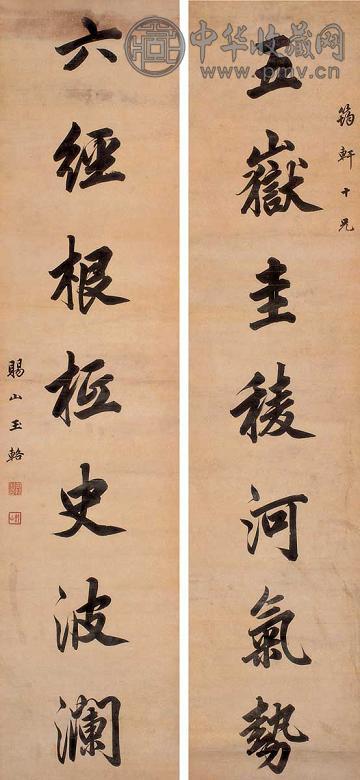 中华收藏网
www.pmv.cn
筠軒十兄
五嶽圭稜河氣勢
六經根柢史波瀾
賜山玉輅